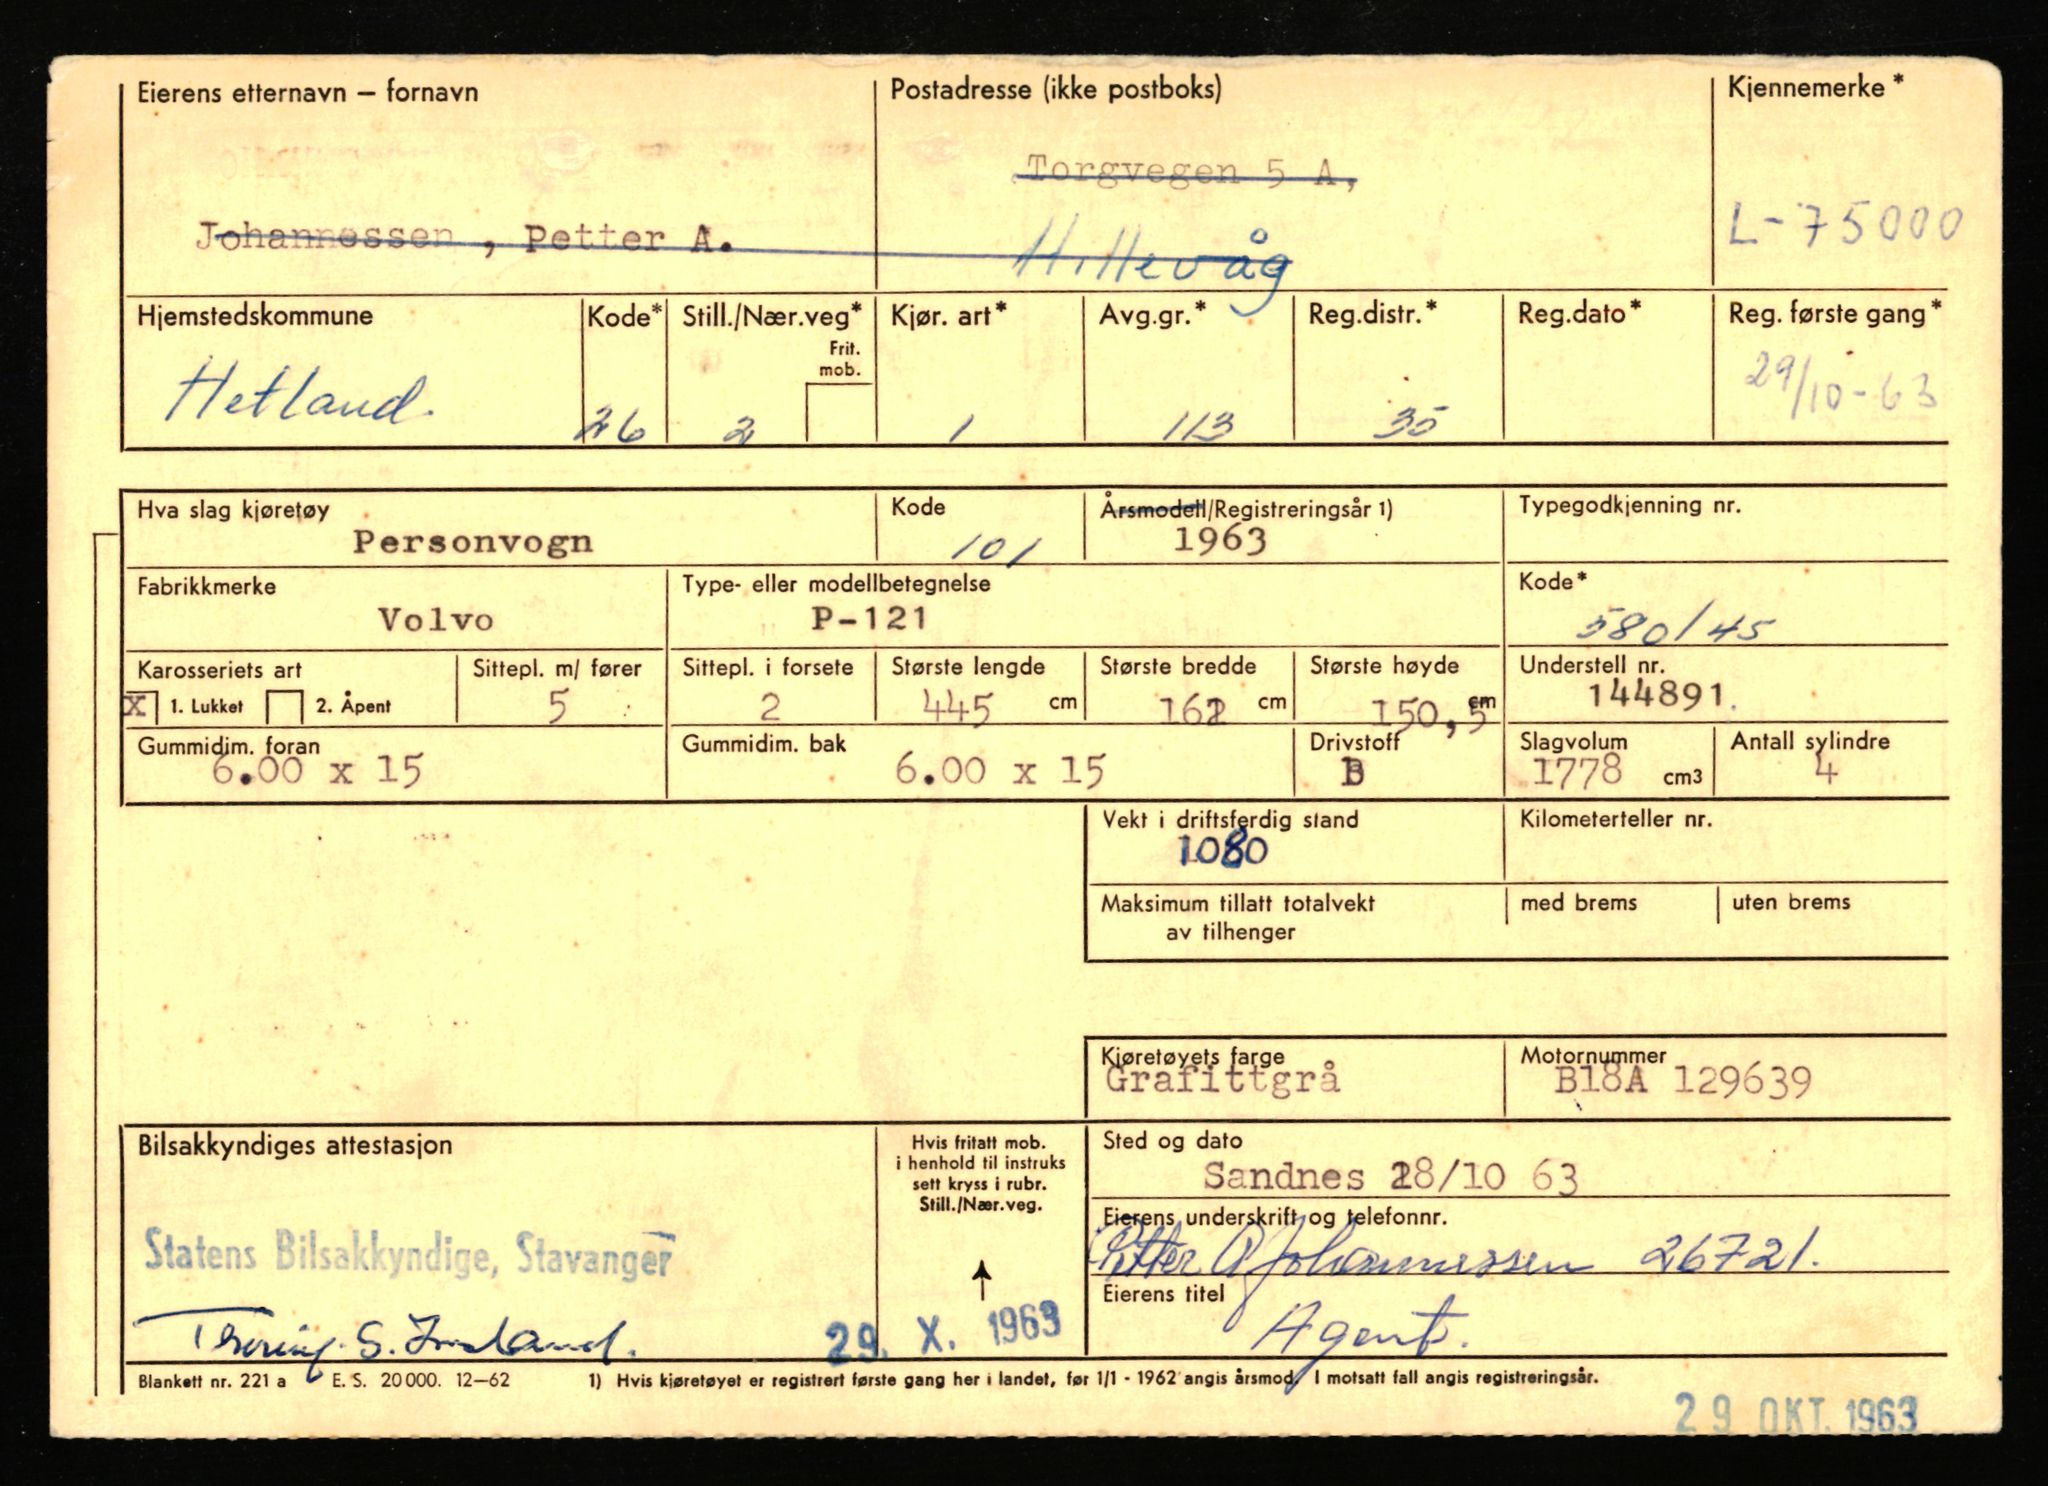 Eierens etternavn – fornavn
Postadresse (ikke postboks)
Kjennemerke*
Torgvegen 5 A,
Johannessen, Petter A.
Hillevåg
L-75000
Hjemstedskommune
Kode*
Still./Nær.veg*
Frit.
mob.
Kjør. art*
Avg.gr.*
Reg.distr.*
Reg.dato*
Reg. første gang*
Hetland.
26
2
1
113
35
29/10-63
Hva slag kjøretøy
Kode
Årsmodell/Registreringsår 1)
Typegodkjenning nr.
Personvogn
101
1963
Fabrikkmerke
Type- eller modellbetegnelse
Kode*
Volvo
P-121
580/45
Karosseriets art
Sittepl. m/ fører
Sittepl. i forsete
Største lengde
Største bredde
Største høyde
Understell nr.
X 1. Lukket 2. Åpent
5
2
445 cm
162 cm
150,5 cm
144891.
Gummidim. foran
Gummidim. bak
Drivstoff
Slagvolum
Antall sylindre
6.00 x 15
6.00 x 15
B
1778 cm3
4
Vekt i driftsferdig stand
Kilometerteller nr.
1080
Maksimum tillatt totalvekt
av tilhenger
med brems
uten brems
Kjøretøyets farge
Motornummer
Grafittgrå
B18A 129639
Bilsakkyndiges attestasjon
Hvis fritatt mob.
i henhold til instruks
sett kryss i rubr.
Still./Nær.veg.
Sted og dato
Sandnes 28/10 63
Eierens underskrift og telefonnr.
Statens Bilsakkyndige, Stavanger
Petter A Johannessen 26721.
Eierens titel
29. X. 1963
Agent.
Blankett nr. 221 a E. S. 20 000. 12–62
1) Hvis kjøretøyet er registrert første gang her i landet, før 1/1 - 1962 angis årsmod. I motsatt fall angis registreringsår.
29 OKT. 1963